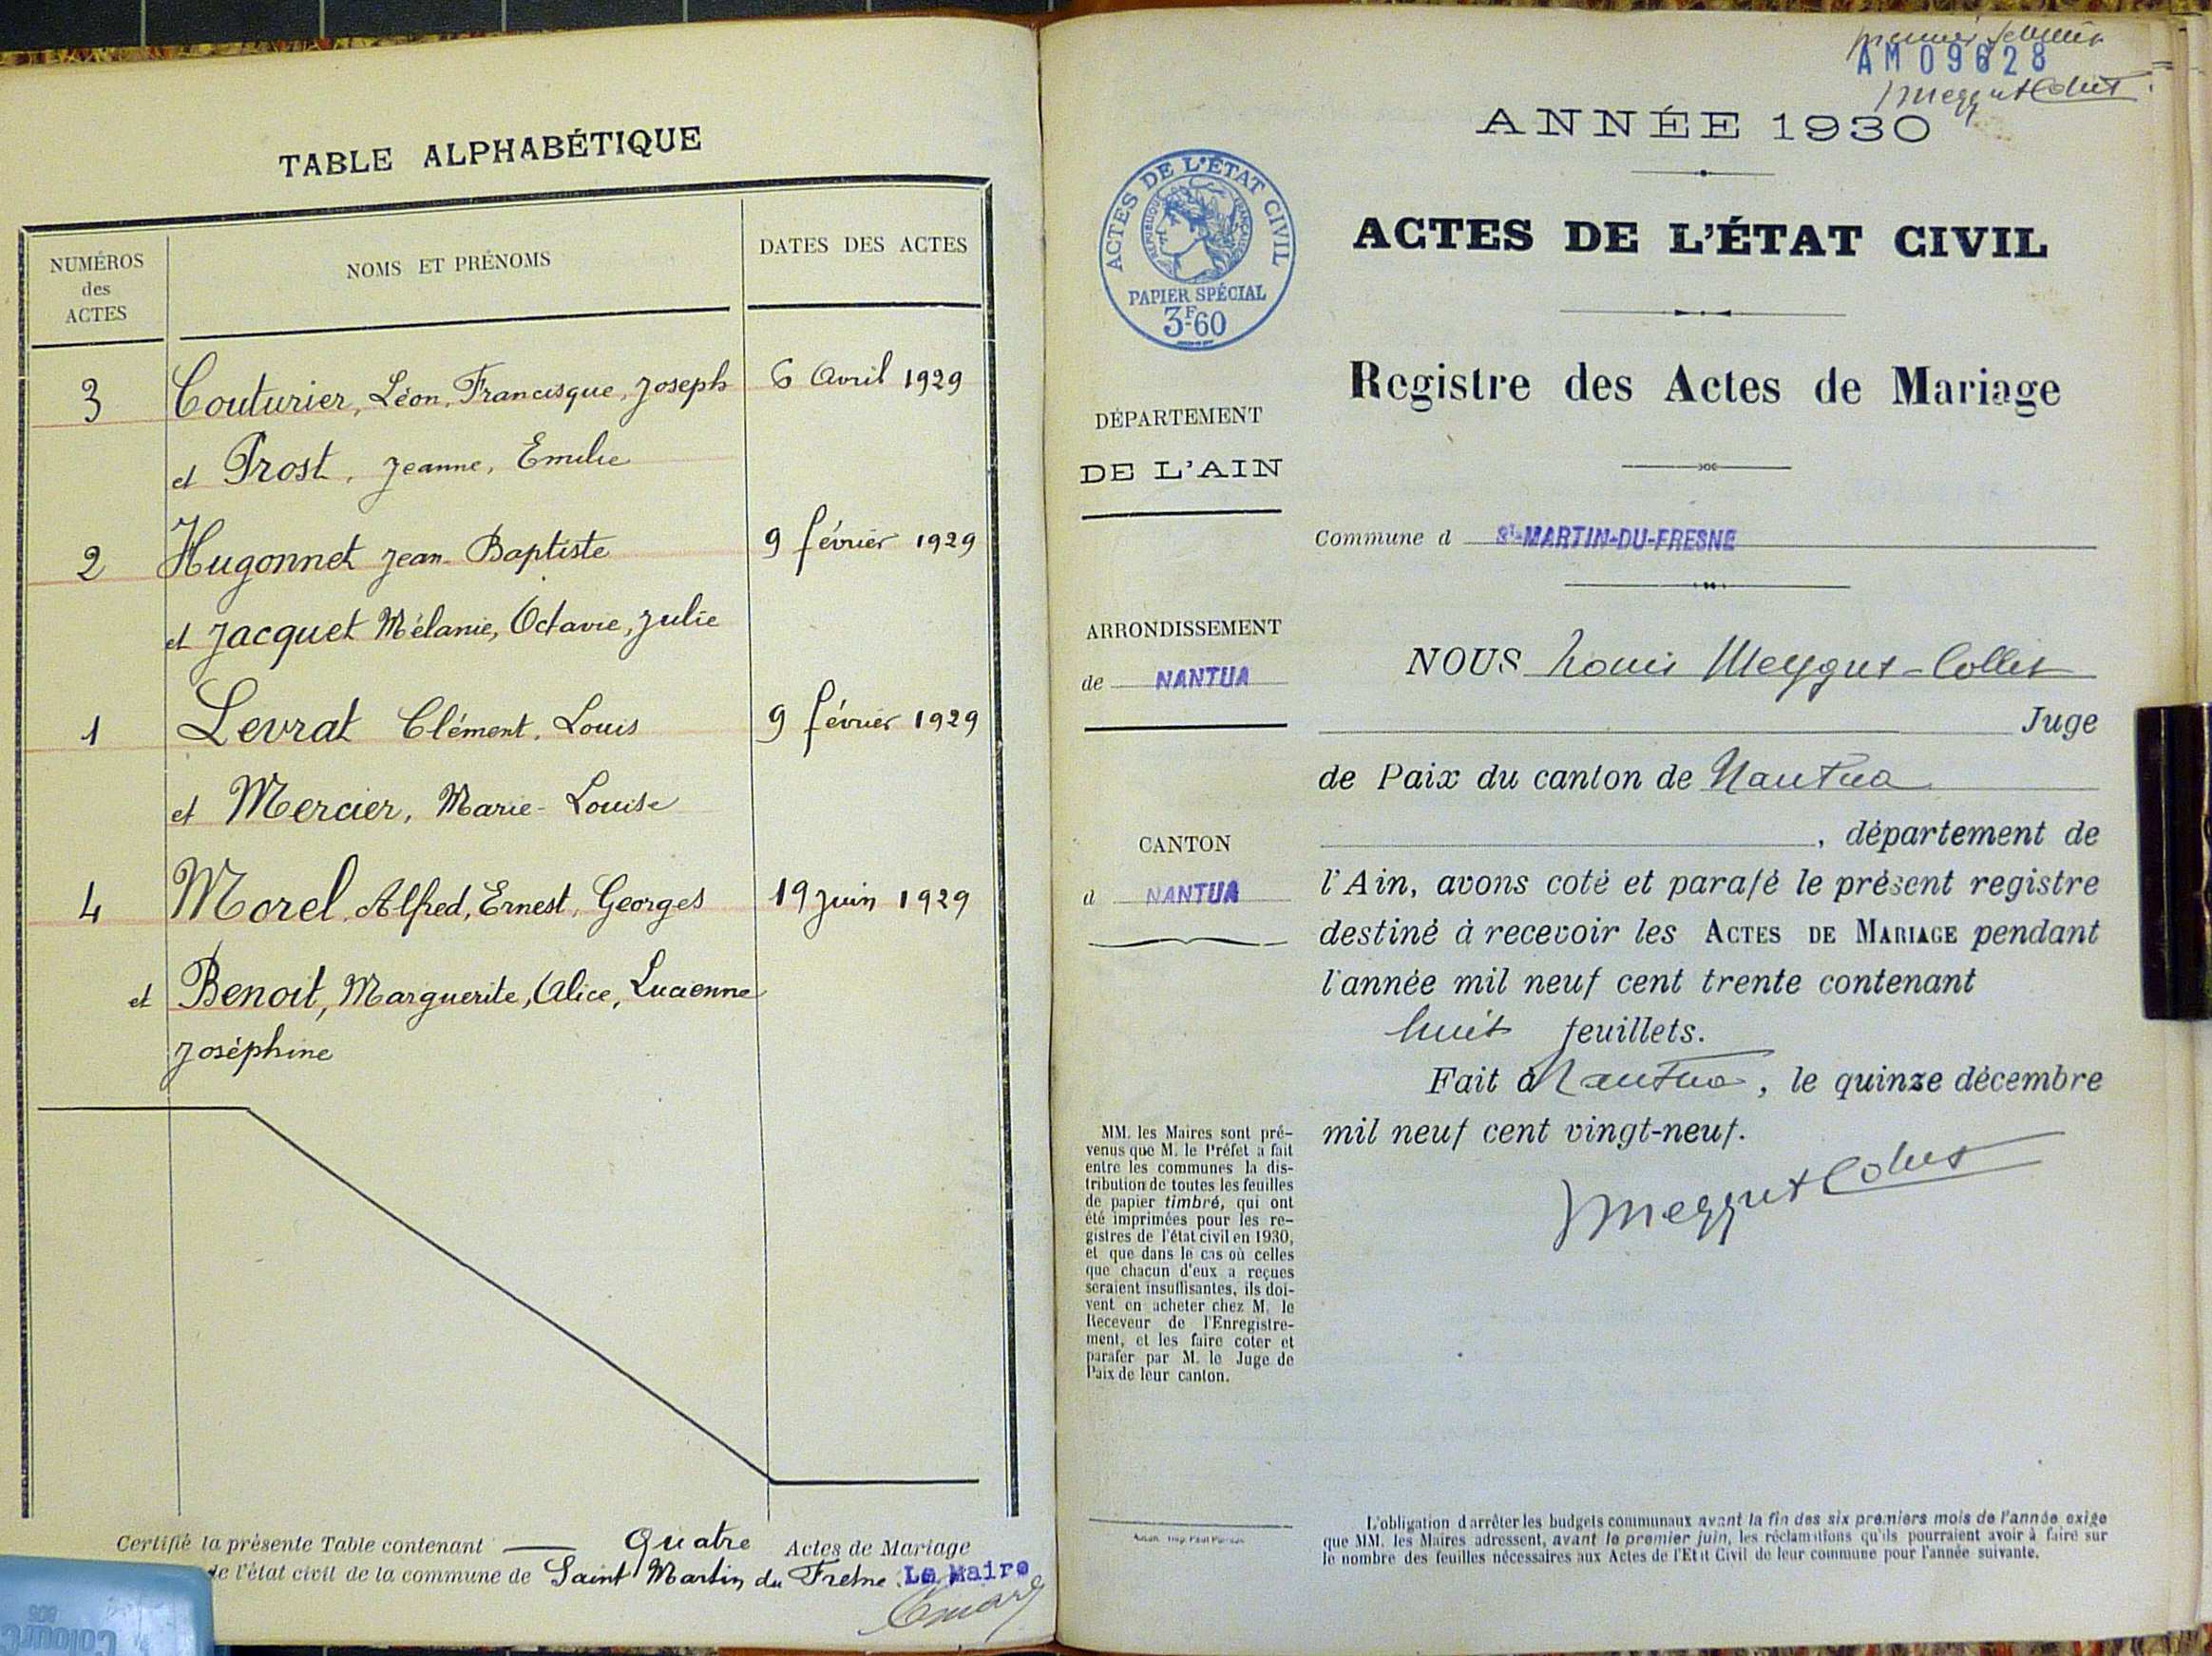 TABLE ALPHABÉTIQUE
NUMÉROS
des
ACTES
NOMS ET PRÉNOMS
DATES DES ACTES
3 Couturier, Léon, Francisque, Joseph 6 Avril 1929
et Prost, Jeanne, Emilie
2 Hugonnet Jean-Baptiste 9 février 1929
et Jacquet Mélanie, Octavie, Julie
1 Levrat Clément, Louis 9 février 1929
et Mercier, Marie-Louise
4 Morel, Alfred, Ernest, Georges 19 Juin 1929
et Benoit, Marguerite, Alice, Lucienne
Joséphine
Certifié la présente Table contenant Quatre Actes de Mariage
de l'état civil de la commune de Saint Martin du Fresne. Le Maire
premier feuillet
AM 09628
ANNÉE 1930
ACTES DE L'ÉTAT CIVIL
RÉPUBLIQUE FRANÇAISE
PAPIER SPÉCIAL
3F60
ACTES DE L'ÉTAT CIVIL
Registre des Actes de Mariage
DÉPARTEMENT
DE L'AIN
Commune d St-MARTIN-DU-FRESNE
ARRONDISSEMENT
de NANTUA
CANTON
d NANTUA
NOUS Louis Meygret-Collet
Juge
de Paix du canton de Nantua
, département de
l'Ain, avons coté et parafé le présent registre
destiné à recevoir les ACTES DE MARIAGE pendant
l'année mil neuf cent trente contenant
huit feuillets.
Fait à Nantua, le quinze décembre
mil neuf cent vingt-neuf.
MM. les Maires sont pré-
venus que M. le Préfet a fait
entre les communes la dis-
tribution de toutes les feuilles
de papier timbré, qui ont
été imprimées pour les re-
gistres de l'état civil en 1930,
et que dans le cas où celles
que chacun d'eux a reçues
seraient insuffisantes, ils doi-
vent en acheter chez M. le
Receveur de l'Enregistre-
ment, et les faire coter et
parafer par M. le Juge de
Paix de leur canton.
L'obligation d'arrêter les budgets communaux avant la fin des six premiers mois de l'année exige
que MM. les Maires adressent, avant le premier juin, les réclamations qu'ils pourraient avoir à faire sur
le nombre des feuilles nécessaires aux Actes de l'Etat Civil de leur commune pour l'année suivante.